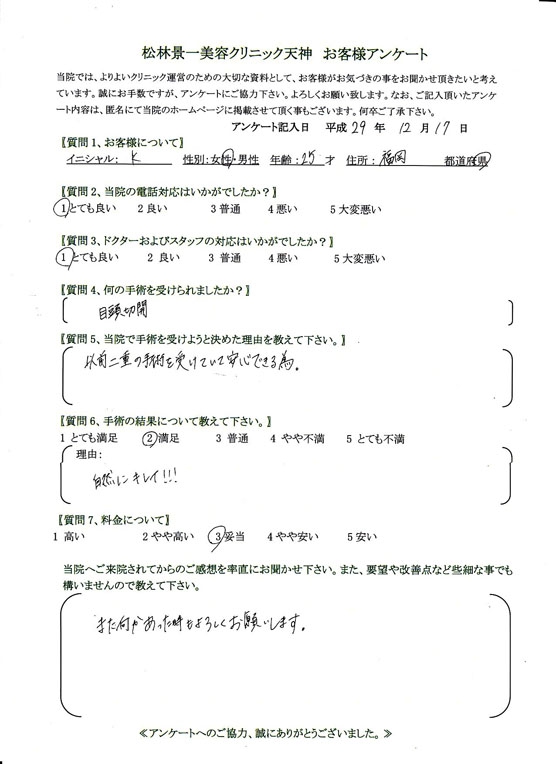 松林景一美容クリニック天神　お客様アンケート
当院では、よりよいクリニック運営のための大切な資料として、お客様がお気づきの事をお聞かせ頂きたいと考え
ています。誠にお手数ですが、アンケートにご協力下さい。よろしくお願い致します。なお、ご記入頂いたアンケ
ート内容は、匿名にて当院のホームページに掲載させて頂く事もございます。何卒ご了承下さい。
アンケート記入日　平成 29 年 12 月 17 日
『質問1、お客様について』
イニシャル： K　性別：女性・男性　年齢：25 才　住所：福岡　都道府県
『質問2、当院の電話対応はいかがでしたか？』
1 とても良い　2 良い　3 普通　4 悪い　5 大変悪い
『質問3、ドクターおよびスタッフの対応はいかがでしたか？』
1 とても良い　2 良い　3 普通　4 悪い　5 大変悪い
『質問4、何の手術を受けられましたか？』
目頭切開
『質問5、当院で手術を受けようと決めた理由を教えて下さい。』
以前二重の手術を受けていて安心できる為。
『質問6、手術の結果について教えて下さい。』
1 とても満足　2 満足　3 普通　4 やや不満　5 とても不満
理由：
自然にキレイ!!!
『質問7、料金について』
1 高い　2 やや高い　3 妥当　4 やや安い　5 安い
当院へご来院されてからのご感想を率直にお聞かせ下さい。また、要望や改善点など些細な事でも
構いませんので教えて下さい。
また何かあった時もよろしくお願いします。
≪アンケートへのご協力、誠にありがとうございました。≫